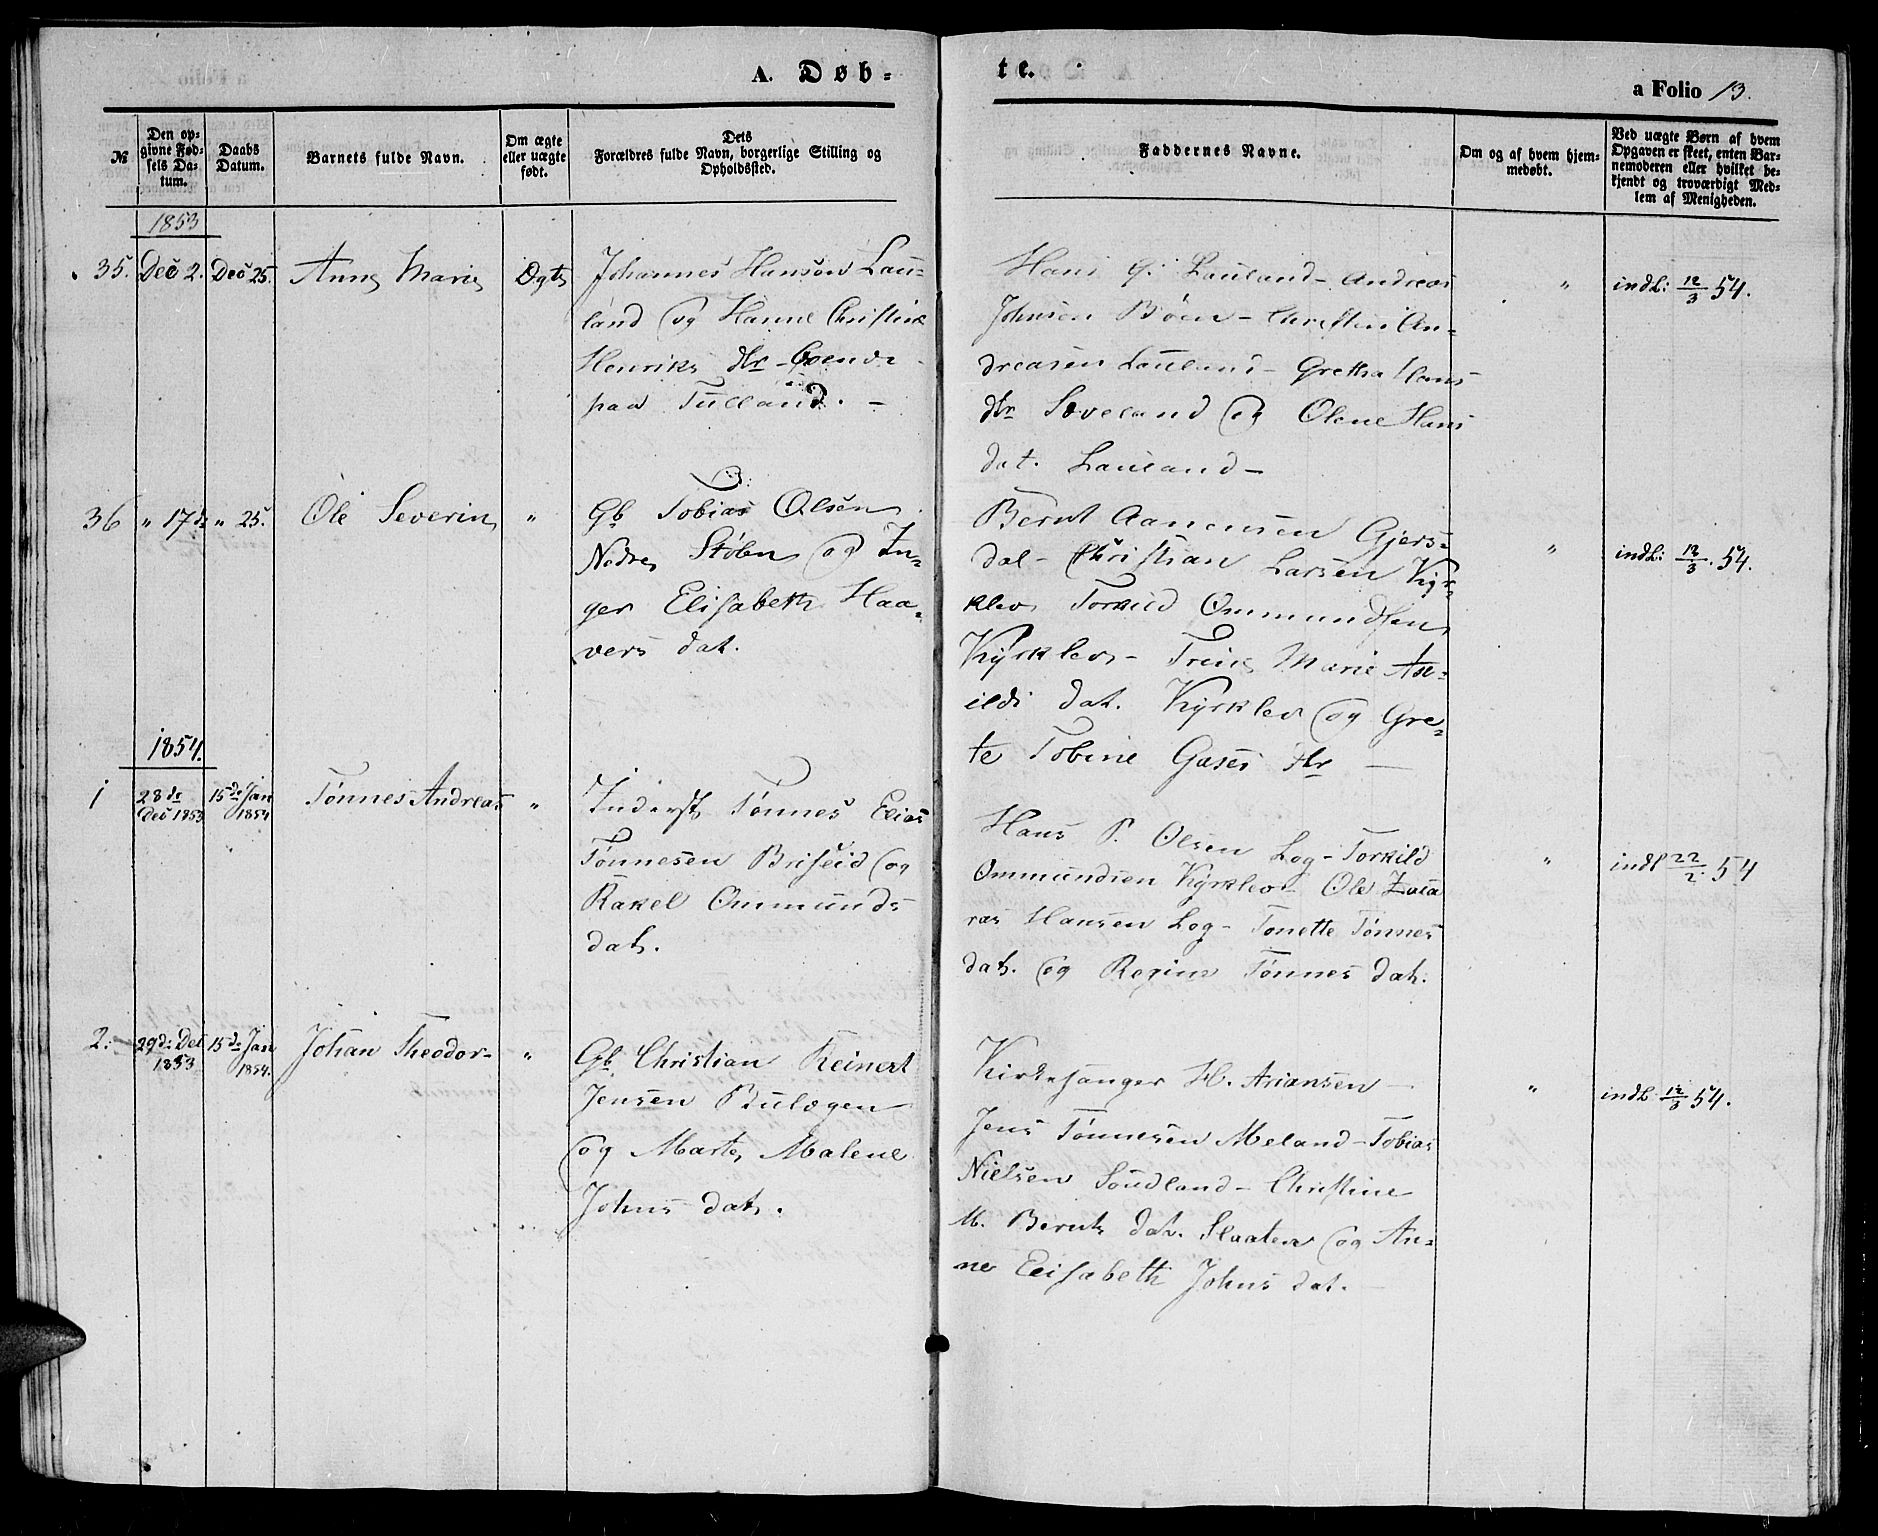 A. Døb-
te.
a Folio 13.
№
Den op-
givne Fød-
sels Da-
tum.
Daabs
Datum.
Barnets fulde Navn.
Om ægte
eller uægte
født.
Dets
Forældres fulde Navn, borgerlige Stilling og
Opholdssted.
Faddernes Navne.
Om og af hvem hjem-
medøbt.
Ved uægte Børn af hvem
Opgaven er skeet, enten Bar-
nemoderen eller hvilket be-
kjendt og troværdigt Med-
lem af Menigheden.
1853
35. Dec 2. Dec 25. Anne Marie Ægte
Johannes Hansen Lau-
land og Hanne Christine
Henriks dtr
paa Tulland. -
Hans G. Lauland - Andreas
Johnsen Böen - Christen An-
dreasen Lauland - Gretha Hans
dtr Soveland og Olene Hans
dat. Lauland -
"
indl: 12/3 54.
36 " 17de " 25. Ole Severin "
Gb Tobias Olsen
Nedre Stölen og In-
ger Elisabeth Haa-
vers dat.
Bernt Aanensen Gjers-
dal - Christian Larsen Kyr-
klev Torkild Ommundsen
Kyrklev - Trine Marie As-
ilds dat. Kyrklev og Gre-
te Tobine Gases dtr -
"
indl: 12/3 54.
1854.
1 28de Dec 1853 15de Jan 1854 Tönnes Andreas "
Inderst Tönnes Elias
Tönnesen Briseid og
Rakel Ommunds
dat.
Hans P. Olsen Log - Torkild
Ommundsen Kyrklev - Ole Zaca
ras Hansen Log - Tonette Tönnes
dat. og Regine Tönnes dat.
"
indl 22/2. 54
2. 29de Dec 1853 15de Jan 1854. Johan Theodor - "
Gb. Christian Reinert
Jensen Bulægen
og Marte Malene
Johns dat.
Kirkesanger H. Ariansen -
Jens Tönnesen Meland - Tobias
Nielsen Soudland - Christine
M. Bernts dat. Slaaten og An-
ne Elisabeth Johns dat. -
"
indl 12/3 54.